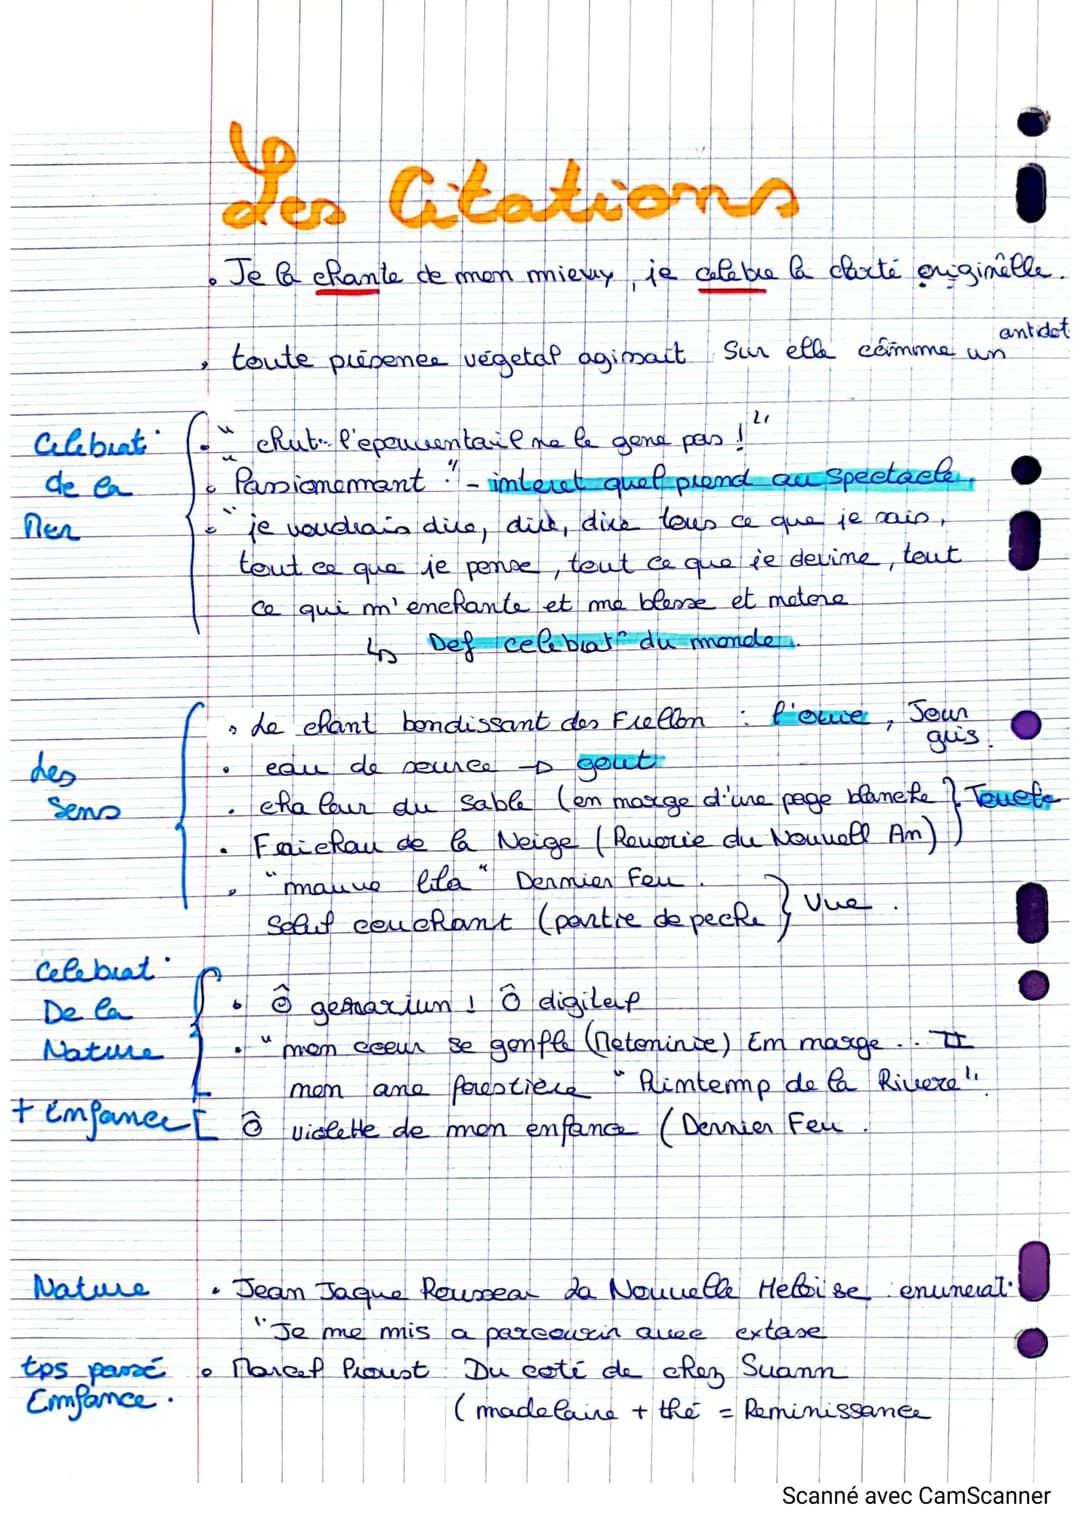 Les Citations
. Je la chante de mon mieux, je celebre la clarté originelle.
antidot
. toute présence végetal agissait Sur elle comme un
Celebrat°
de la
Mer
. " chut.. l'epouventail ne le gene pas ! "
. " Passionemant : " - interet quel prend au spectacle.
. " je voudrais dire, dire, dire tous ce que je sais,
tout ce que je pense, tout ce que je devine, tout
ce qui m'enchante et me blesse et metone
↳ Def celebrat° du monde.
Les
Sens
. Le chant bondissant des Frellon : l'ouie, Jour
gris.
. eau de source → gout
. chaleur du sable (en marge d'une page blanche } Touche
. Fraicheur de la Neige (Reverie du Nouvell An)
. "mauve lila" Dernier Feu.
Soleil couchant (partie de peche } Vue.
Celebrat°
De la
Nature
. Ô geranium ! Ô digitale
. " mon coeur se gonfle (Metonimie) Em marge ... II
mon ame forestière " Printemp de la Riviere".
+ Enfance [ Ô violette de mon enfance ( Dernier Feu.
Nature . Jean Jaque Rousseau La Nouvelle Heloise : enumerat°
"Je me mis a parcourir avec extase
tps passé . Marcel Proust : Du coté de chez Suann
Emfance. (madelaine + thé = Reminissance
Scanné avec CamScanner